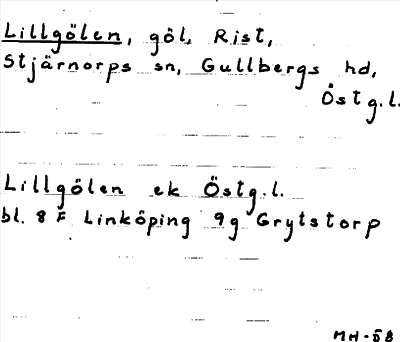 Lillgölen, göl, Rist,
Stjärnorps sn, Gullbergs hd,
Östg.l.
Lillgölen ek Östg.l.
bl. 8 F Linköping 9g Grytstorp
MH-ÖB